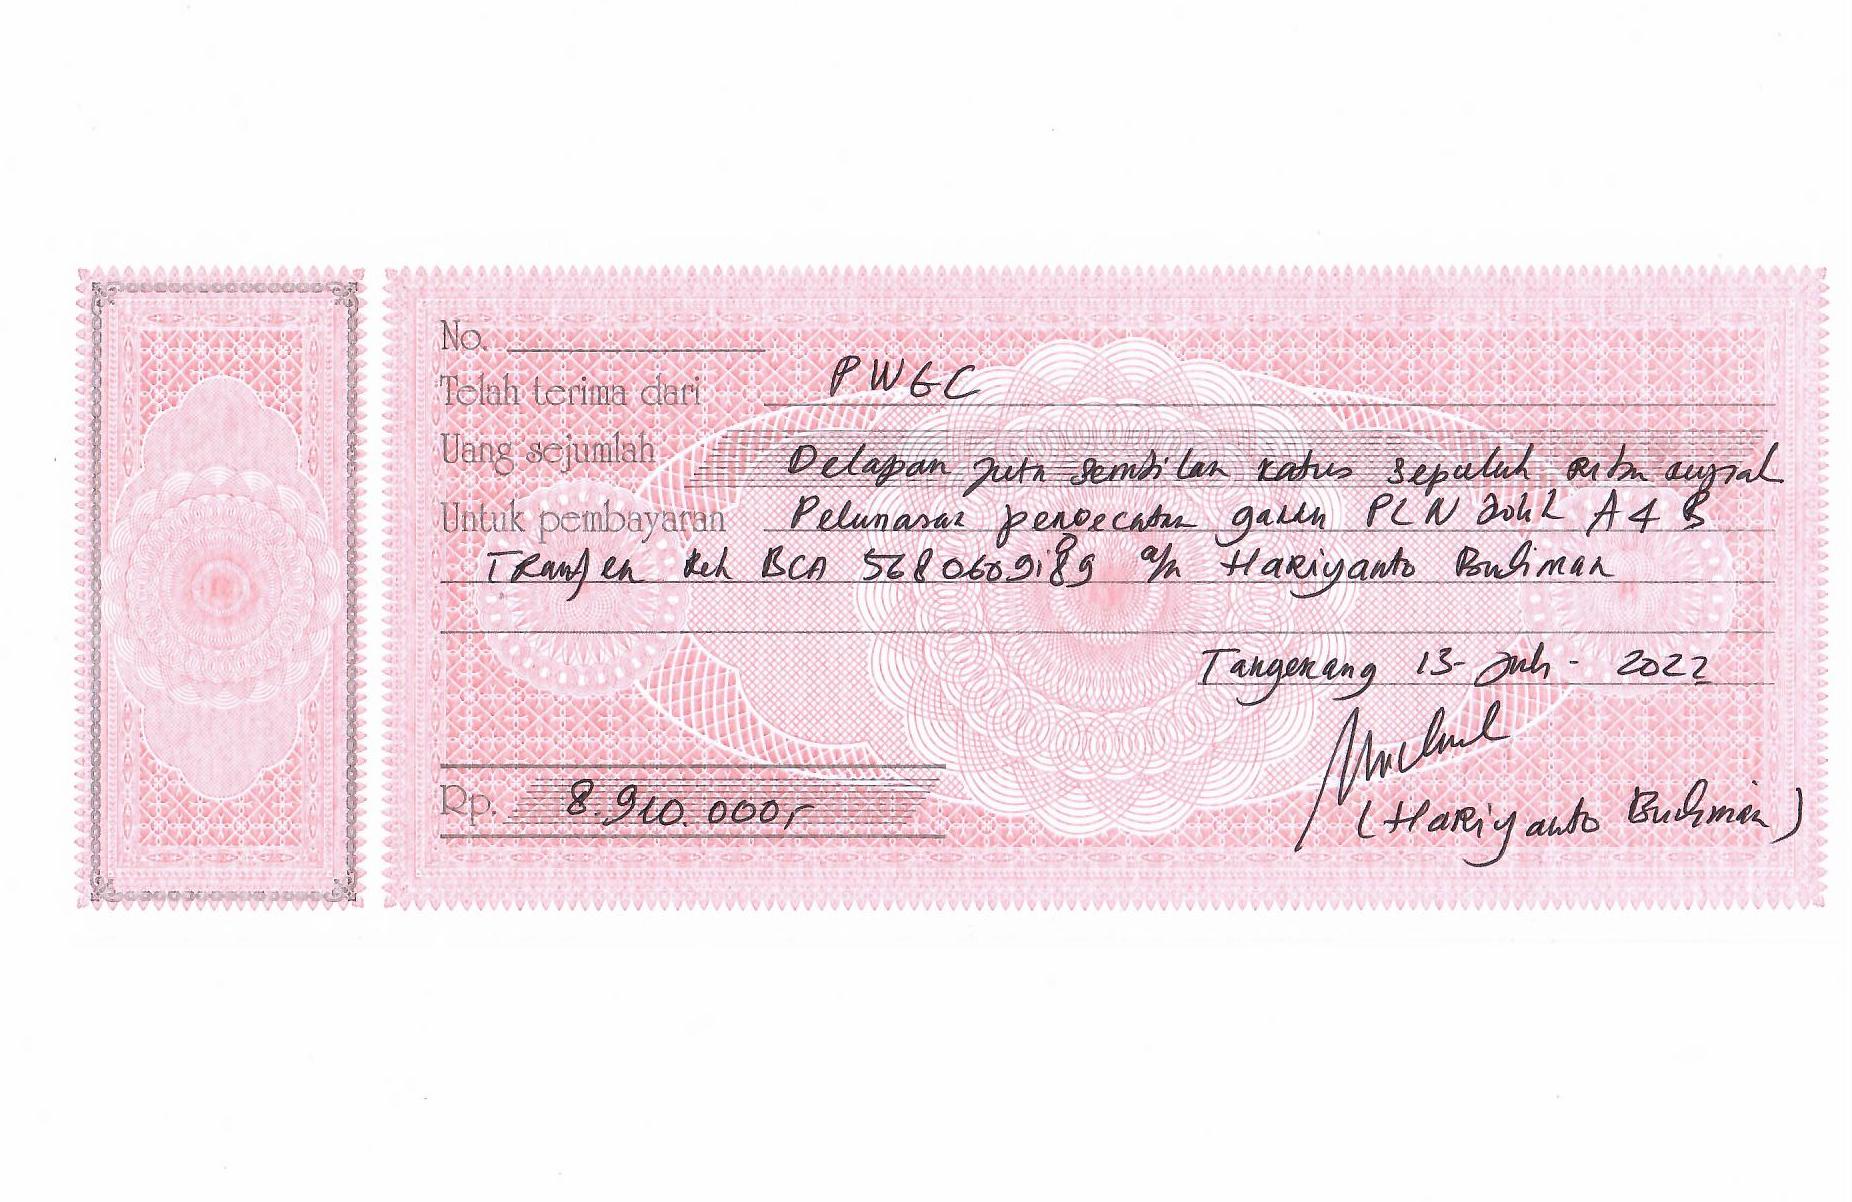 No.
Telah terima dari PWGC
Uang sejumlah Delapan juta sembilan ratus sepuluh ribu rupiah
Untuk pembayaran Pelunasan pengecatan PLN A4 B
Transfer Rek BCA a/n Hariyanto Budiman
Tangerang 13 - Juli - 2022
Rp. 8.910.000,-
(Hariyanto Budiman)